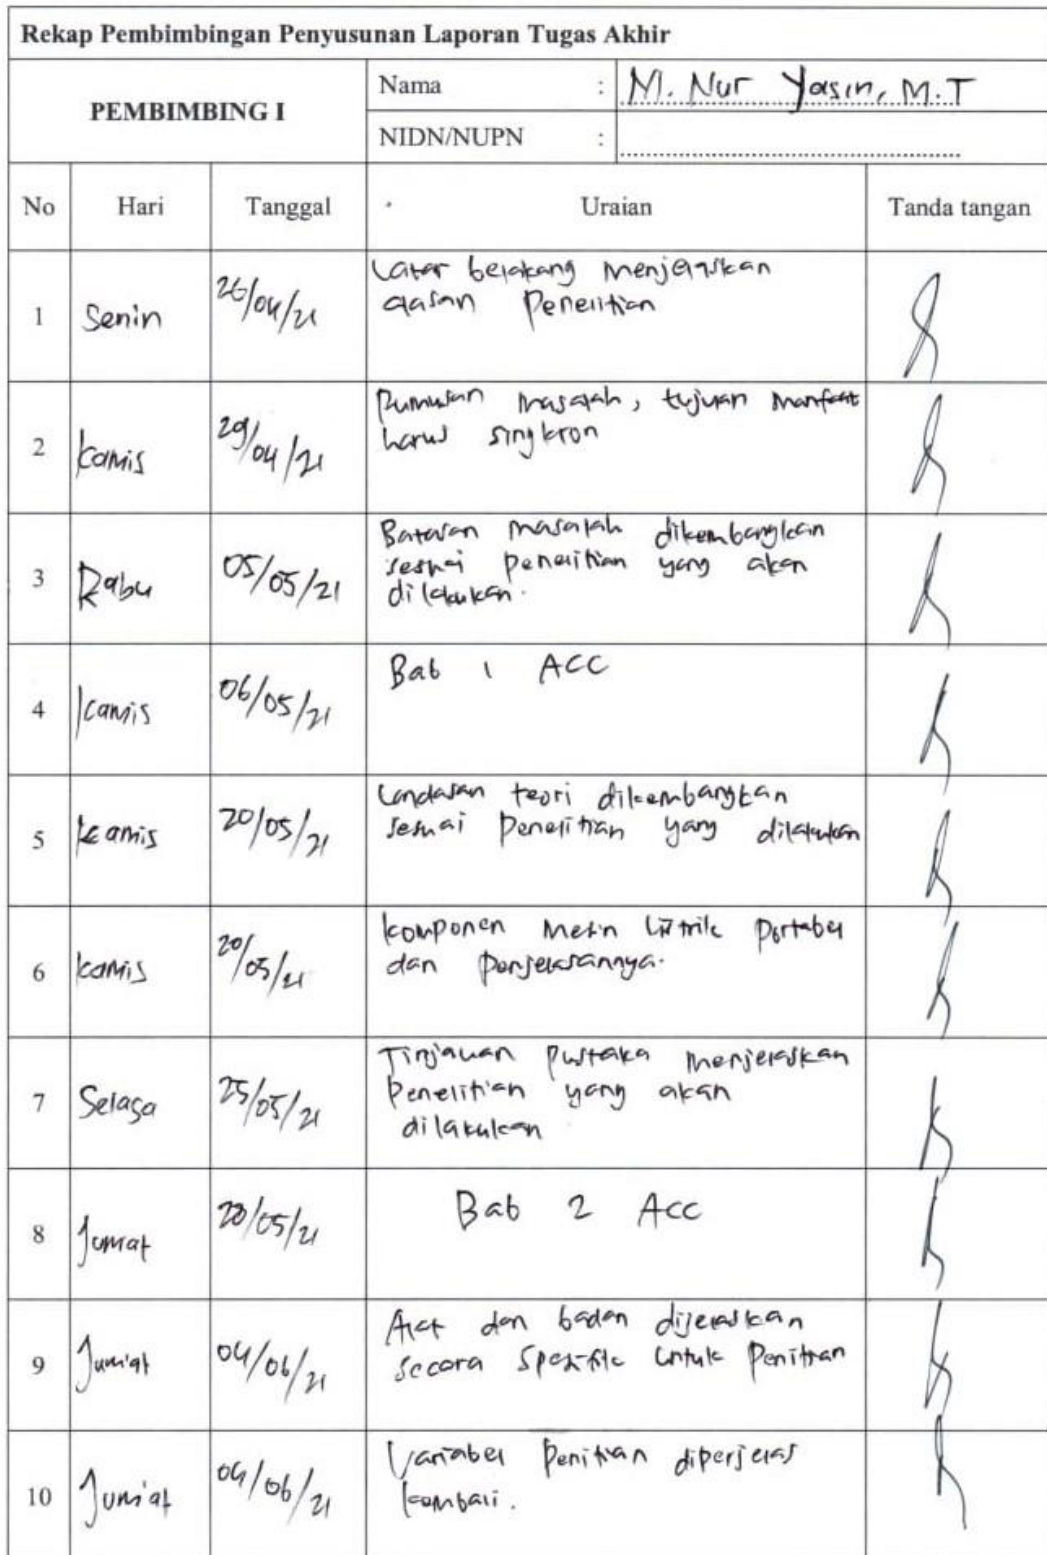 Rekap Pembimbingan Penyusunan Laporan Tugas Akhir
PEMBIMBING I
Nama : M. Nur Yasin, M.T
NIDN/NUPN :
No Hari Tanggal Uraian Tanda tangan
1 Senin 26/04/21 Latar belakang menjelaskan
alasan Penelitian
2 Kamis 29/04/21 Rumusan masalah, tujuan manfaat
harus singkron
3 Rabu 05/05/21 Batasan masalah dikembangkan
sesuai penelitian yang akan
dilakukan.
4 Kamis 06/05/21 Bab 1 ACC
5 Kamis 20/05/21 Landasan teori dikembangkan
sesuai penelitian yang dilakukan
6 Kamis 20/05/21 Komponen Mesin Listrik Portabel
dan Penjelasannya.
7 Selasa 25/05/21 Tinjauan Pustaka menjelaskan
Penelitian yang akan
dilakukan
8 Jumat 28/05/21 Bab 2 Acc
9 Jum'at 04/06/21 Alat dan badan dijelaskan
secara Spesifik untuk Penitian
10 Jum'at 04/06/21 Variabel Penitian diperjelas
kembali.